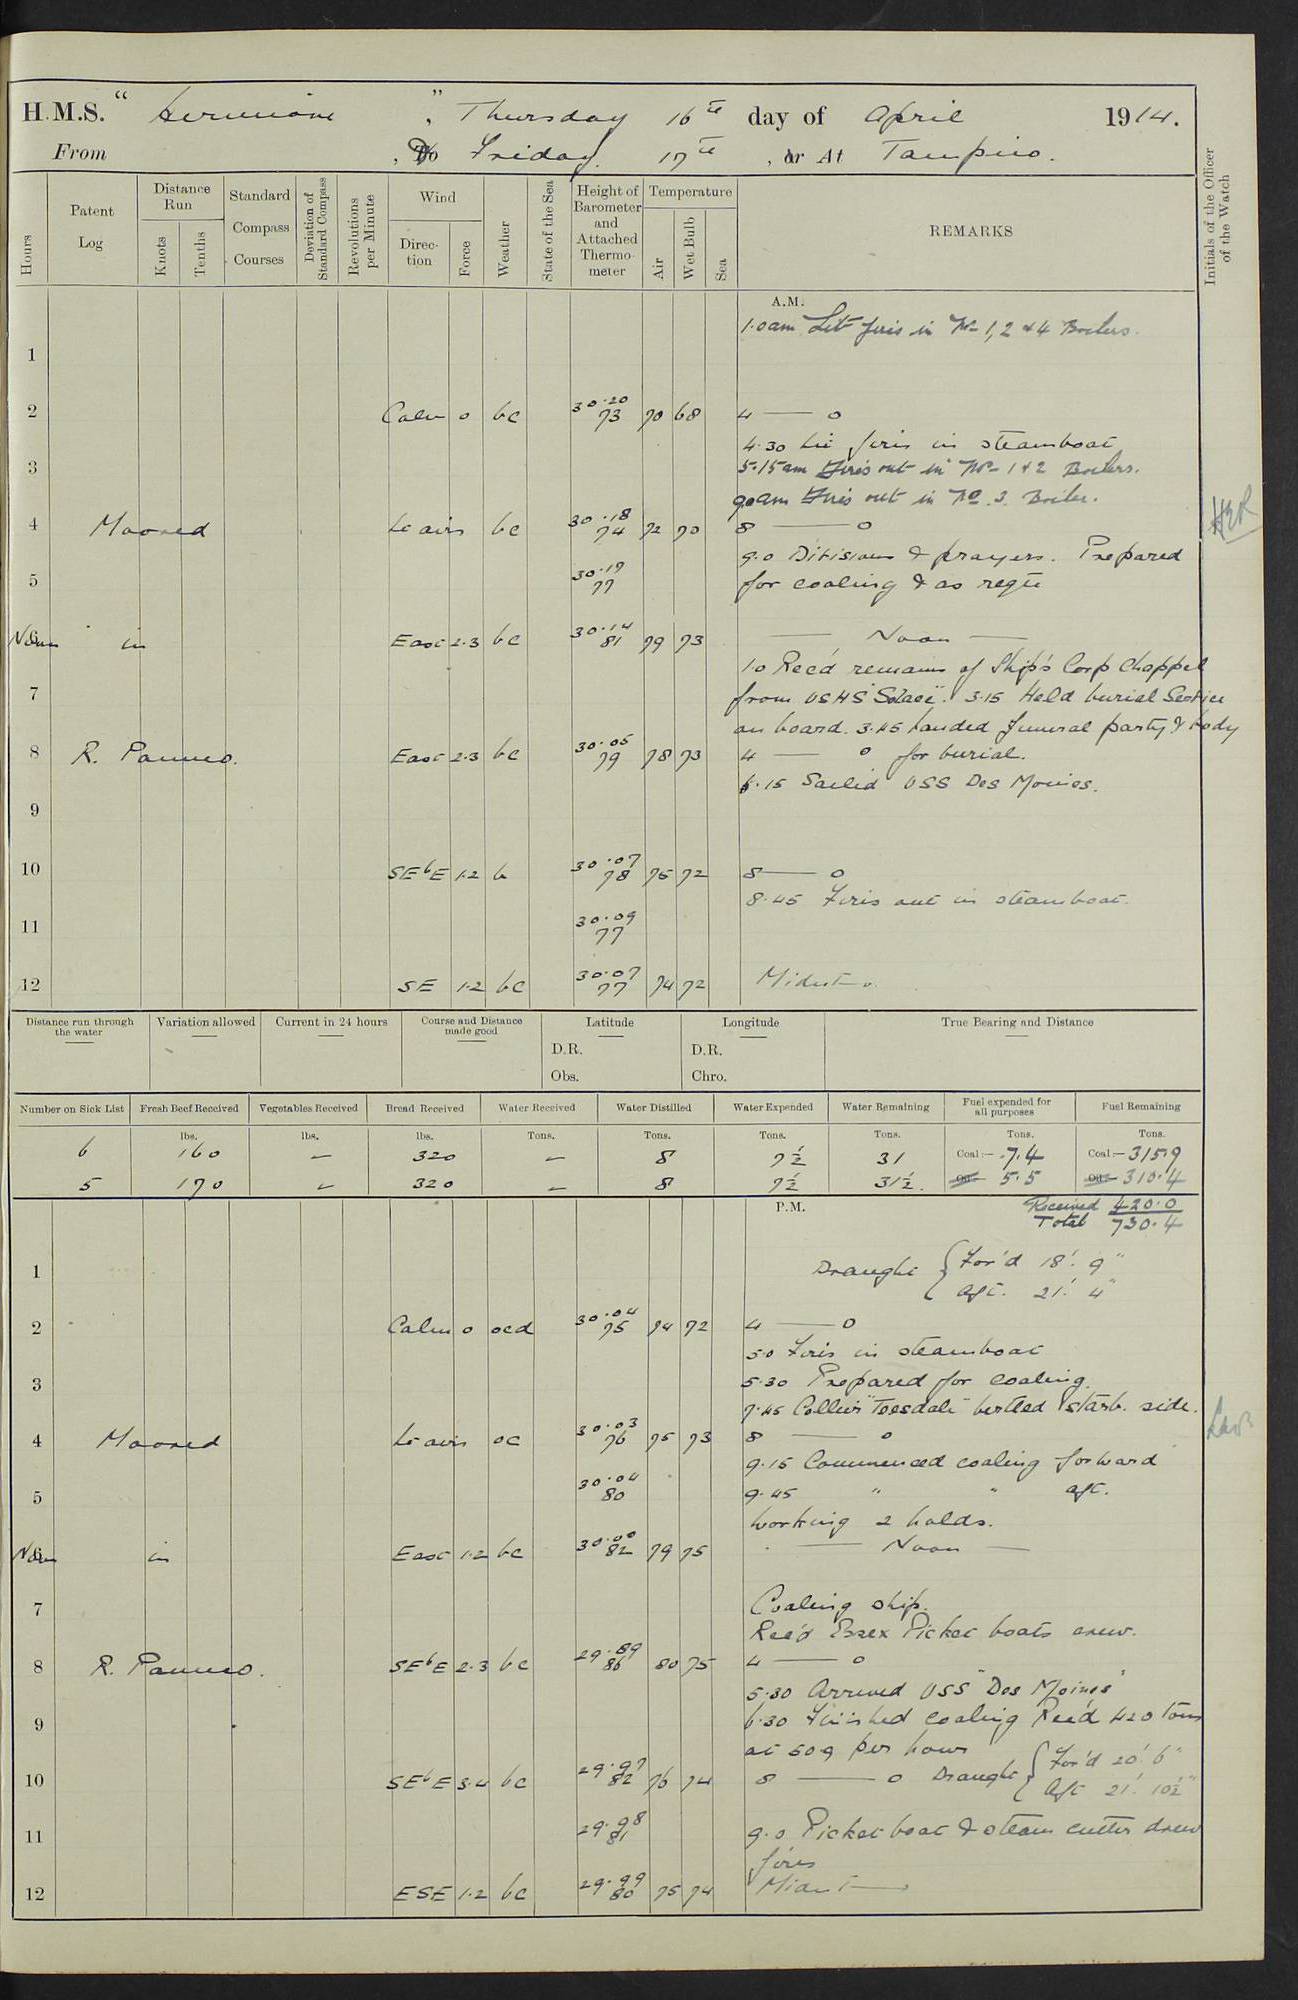 H.M.S. "Hermione", Thursday 16th day of April 1914.
From , To Friday. 17th , or At Tampico.
Hours
Patent Log
Distance Run
Knots
Tenths
Standard Compass Courses
Deviation of Standard Compass
Revolutions per Minute
Wind
Direction
Force
Weather
State of the Sea
Height of Barometer and Attached Thermometer
Temperature
Air
Wet Bulb
Sea
REMARKS
Initials of the Officer of the Watch
A.M.
1.0am Lit fires in No 1, 2 & 4 Boilers.
1
2 Calm 0 bc 30.20 73 70 68 4 — 0
4.30 Lit fires in steamboat
3 5.15am Fires out in No 1 & 2 Boilers.
9.0am Fires out in No. 3. Boiler.
4 Moored Lt airs bc 30.18 74 72 70 8 — 0
HER
9.0 Divisions & prayers. Prepared
5 30.19 77 for coaling & as reqte
Noon 6 in East 2.3 bc 30.14 81 79 73 — Noon —
1.0 Rec'd remains of Ship's Corp Chappel
7 from USHS "Solace". 3.15 Held burial Service
on board. 3.45 landed funeral party & body
8 R. Panuco. East 2.3 bc 30.05 79 78 73 4 — 0 for burial.
6.15 Sailed USS Des Moines.
9
10 SEbE 1.2 b 30.07 78 75 72 8 — 0
8.45 Fires out in steamboat.
11 30.09 77
12 SE 1.2 bc 30.07 77 74 72 Midnt
Distance run through the water
Variation allowed
Current in 24 hours
Course and Distance made good
Latitude
D.R.
Obs.
Longitude
D.R.
Chro.
True Bearing and Distance
Number on Sick List Fresh Beef Received Vegetables Received Bread Received Water Received Water Distilled Water Expended Water Remaining Fuel expended for all purposes Fuel Remaining
lbs. lbs. lbs. Tons. Tons. Tons. Tons. Tons. Tons.
6 160 — 320 — 8 7½ 31 Coal:— 7.4 Coal:— 315.9
5 170 — 320 — 8 7½ 31½. Oil:— 5.5 Oil:— 310.4
P.M.
Received 420.0
Total 730.4
1 Draught { For'd 18'. 9"
Aft. 21'. 4"
2 Calm 0 ocd 30.04 75 74 72 4 — 0
5.0 Fires in steamboat
3 5.30 Prepared for coaling.
7.45 Collier "Teesdale" berthed starb. side.
4 Moored Lt airs oc 30.03 76 75 73 8 — 0
9.15 Commenced coaling forward
5 30.04 80 9.45 " " aft.
Working 2 holds.
Noon 6 in East 1.2 bc 30.00 82 79 75 — Noon —
7 Coaling ship.
Rec'd Essex Picket boats crew.
8 R. Panuco. SEbE 2.3 bc 29.89 86 80 75 4 — 0
5.30 Arrived USS "Des Moines"
9 6.30 Finished coaling Rec'd 420 tons
at 50.9 per hour
10 SEbE 3.4 bc 29.97 82 76 74 8 — 0 Draught { For'd 20'. 6"
Aft 21'. 10½"
11 29.98 81 9.0 Picket boat & steam cutter drew
fires
12 ESE 1.2 bc 29.99 80 75 74 Midnt